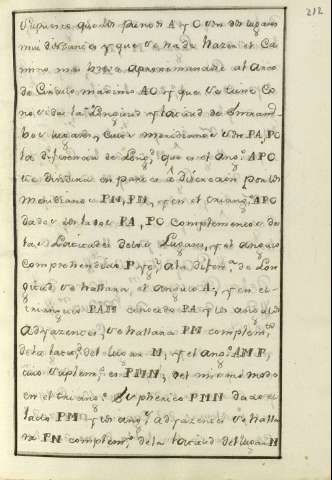 212
Supuesto que los puntos A y O son dos lugares
mui distantes y que se ha de hazer el Ca
mino mas breve aproximandose al Arco
de Circulo maximo AO, y que se tiene Co
nocida la Longitud y latitud de entram
bos lugares, cuios meridianos son PA, PO
la diferencia de Long.d que es el ang.o APO
se dividira en partes a discrecion por los
meridianos PM, PN, y en el triang.o APO
dados los lados PA, PO complementos de
las Latitudes de los Lugares, y el angulo
comprehendido P igual a la difer.a de Lon
gitud se hallara, el angulo A; y en el
triangulo PAM conocido PA y los angulos
Adyazentes, se hallara PM complem.to
de la latit.d del lugar M; y el ang.o AMP,
cuio suplem.to es PMN; del mismo modo
en el triang.o Spherico PMN dado el
lado PM y los ang.s adyazentes se halla
ra PN complem.to de la latitud del lugar N